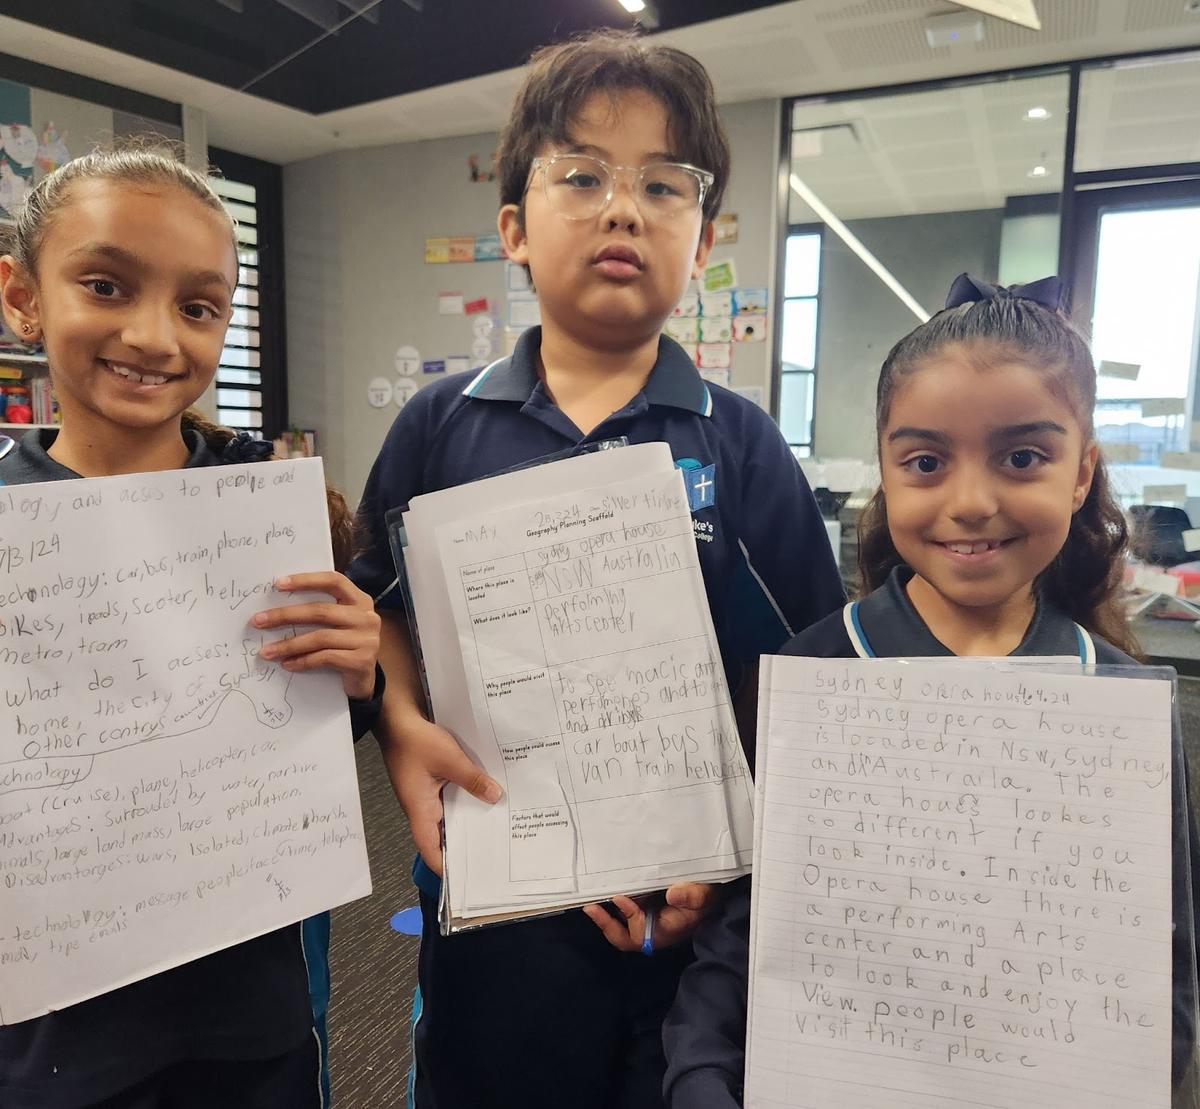 ology and acses to people and
7/3/24
echnology: car, bus, train, phone, plane,
bikes, ipads, scooter, helicopt
metro, tram
what do I acses:
home, the city of Sydney,
Other contrys
chnology
boat (cruise), plane, helicopter, car
Advantages: Surrouded by water, native
nimals, large land mass, large population.
Disadvantarges: wars, Isolated, climate harsh
technology: message people, face time, telepho
type emails
Name MAX
28.3.24
silver
Geography Planning Scaffold
Name of place
sydney opera house
Where this place is located
NSW Australia
What does it look like?
Performing
Arts Center
Why people would visit this place
to see magic
and
and drinks
How people could access this place
car bout bus
van train
Factors that would affect people accessing this place
ke's
College
Sydney opera house 4.4.24
Sydney opera house
is locaded in Nsw, Sydney,
and Austraila. The
opera houes lookes
so different if you
look inside. Inside the
Opera house there is
a performing Arts
center and a place
to look and enjoy the
View. people would
Visit this place